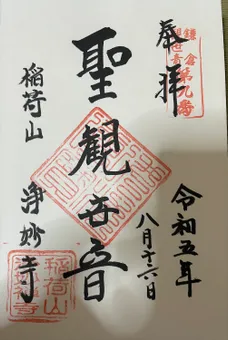 奉拝
鎌倉
観世音
第九番
令和五年
八月十六日
聖観世音
稲荷山
浄妙寺
稲荷山
浄妙寺